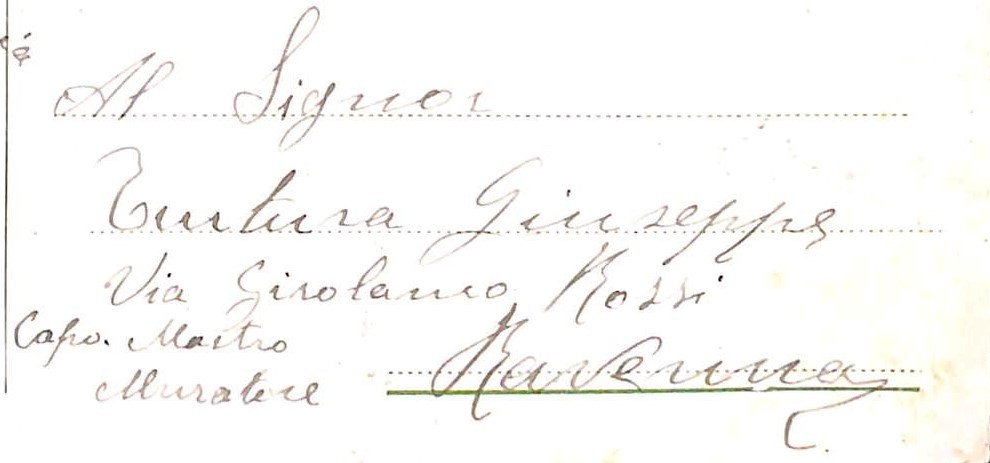 Al Signor
Turtura Giuseppe
Via Girolamo Rossi
Capo. Mastro
Muratore
Ravenna